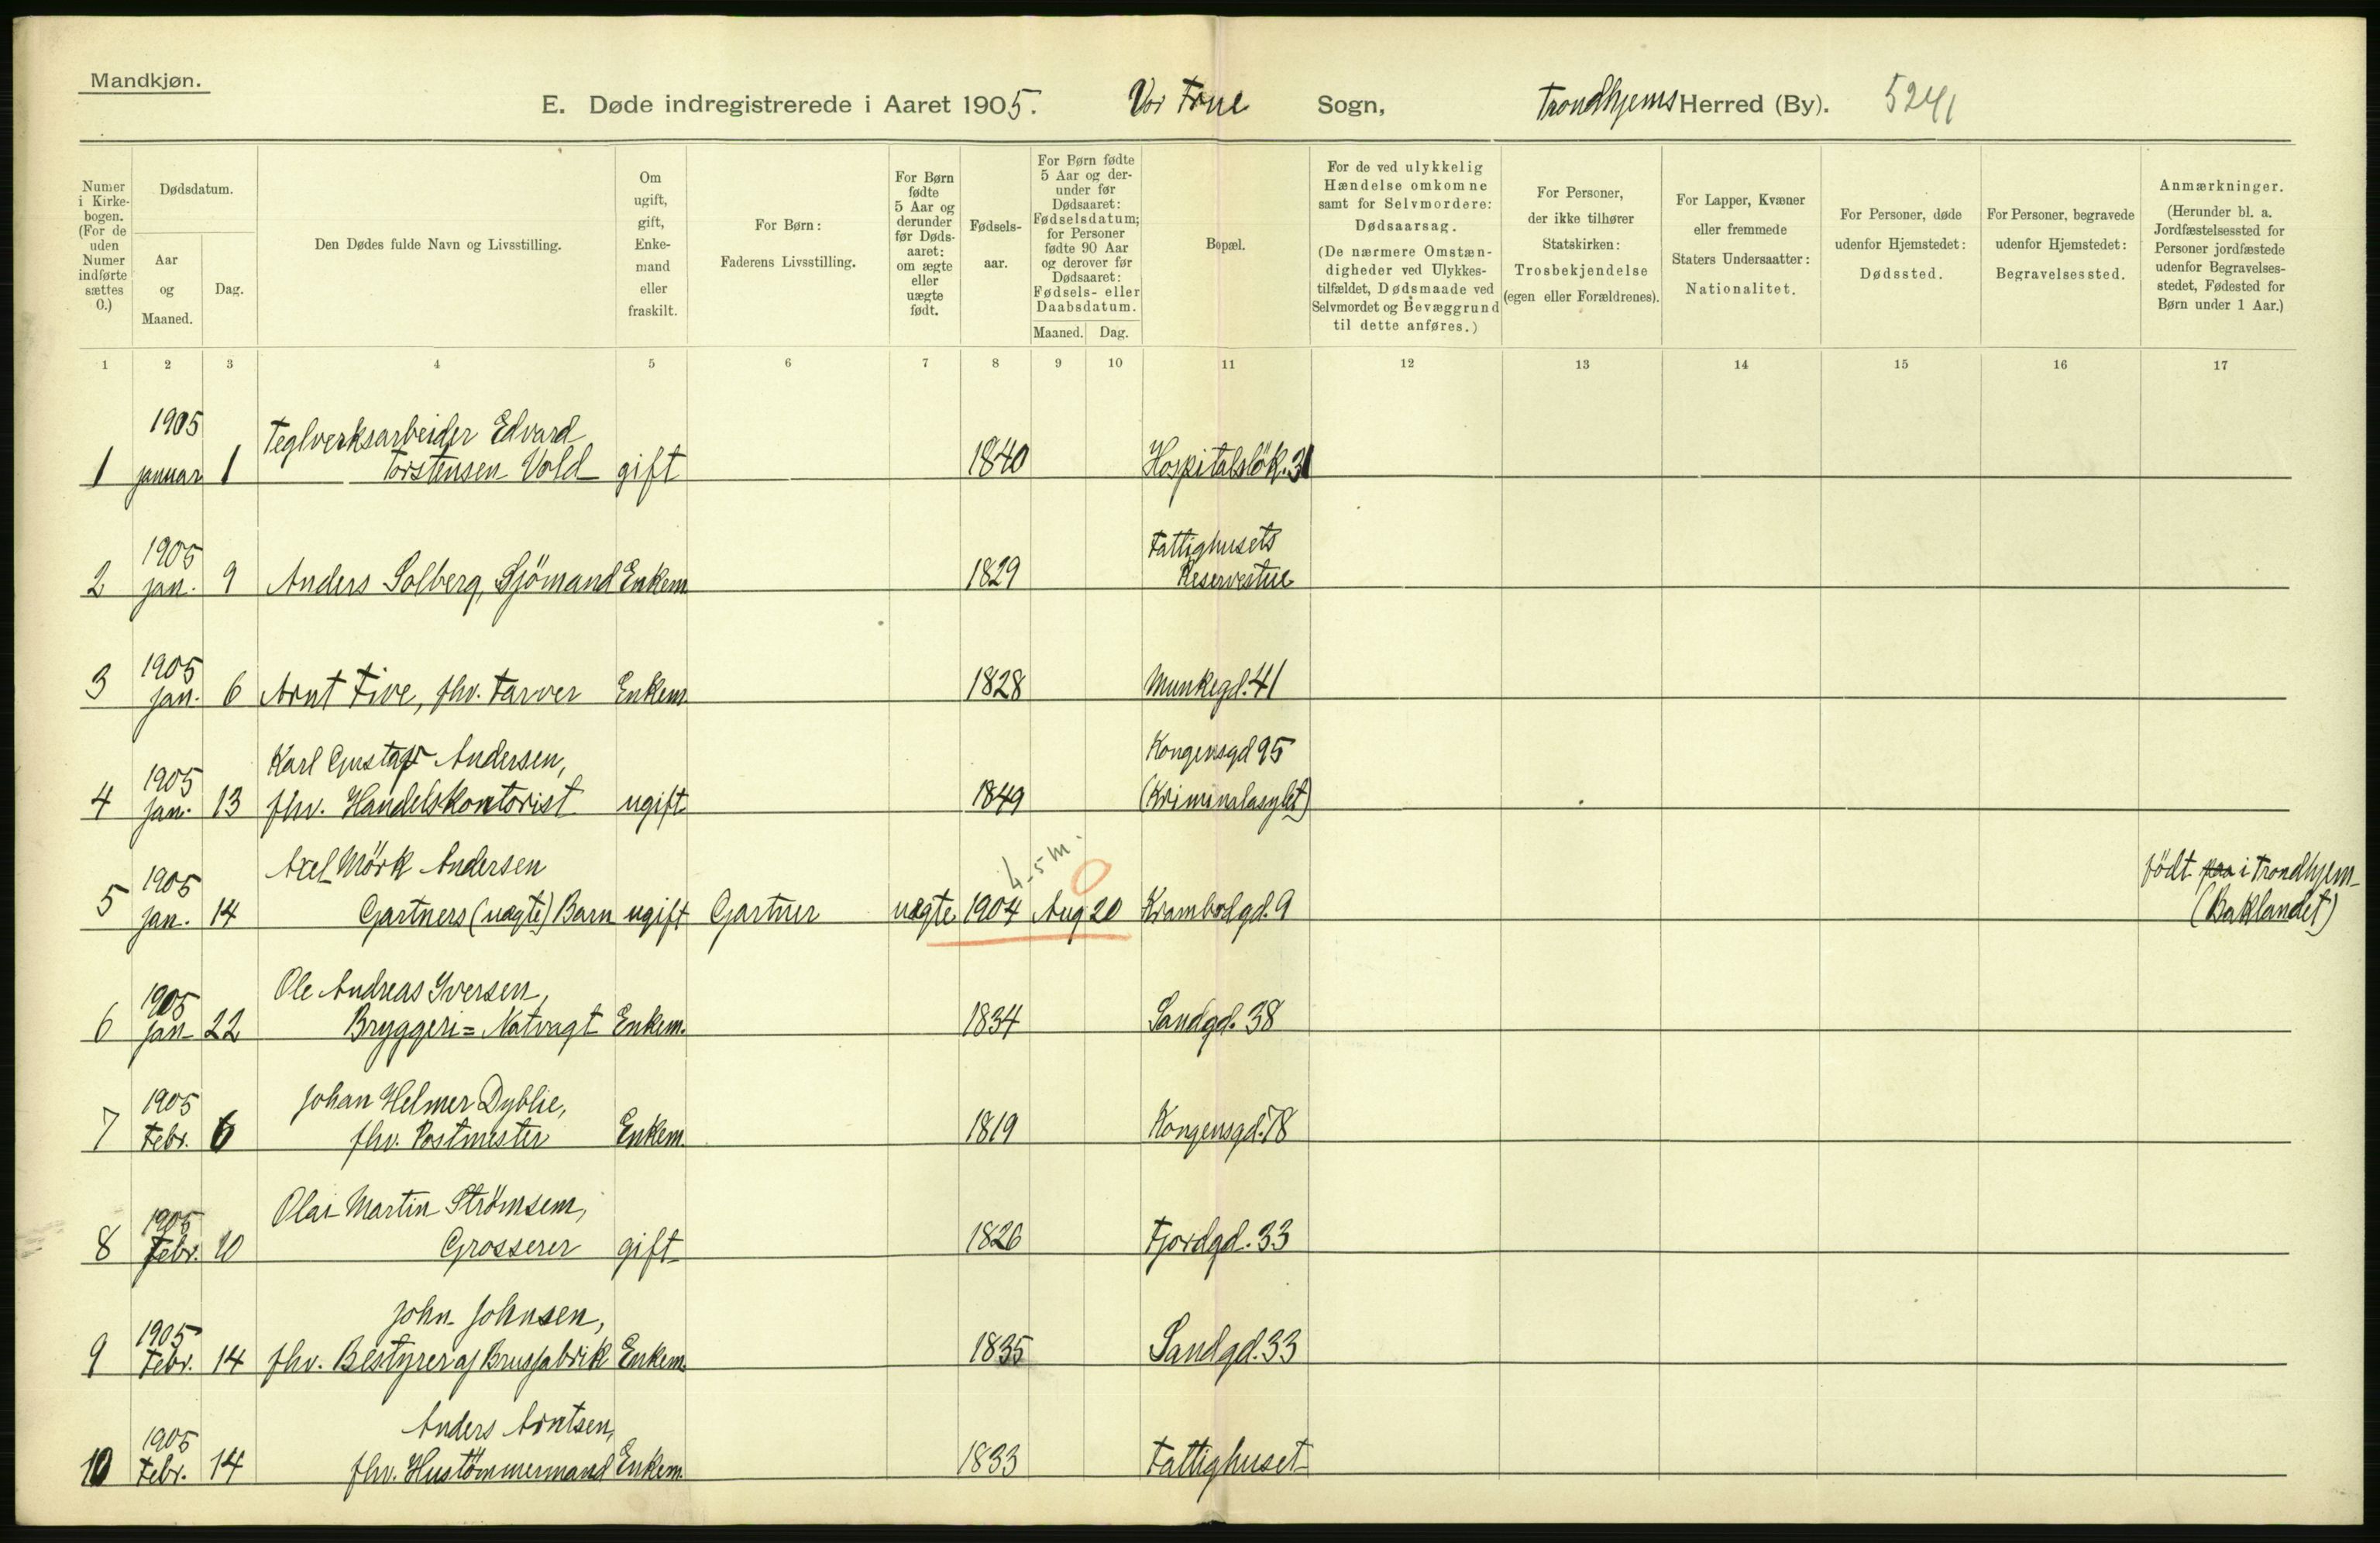 Mandkjøn.
E. Døde indregistrerede i Aaret 1905. Vor Frue Sogn, Trondhjems Herred (By). 5241
Numer
i Kirke-
bogen.
(For de
uden
Numer
indførte
sættes
0.)
Dødsdatum.
Aar
og
Maaned.
Dag.
Den Dødes fulde Navn og Livsstilling.
Om
ugift,
gift,
Enke-
mand
eller
fraskilt.
For Børn:
Faderens Livsstilling.
For Børn
fødte
5 Aar og
derunder
før Døds-
aaret:
om ægte
eller
uægte
født.
Fødsels-
aar.
For Børn fødte
5 Aar og der-
under før
Dødsaaret:
Fødselsdatum;
for Personer
fødte 90 Aar
og derover før
Dødsaaret:
Fødsels- eller
Daabsdatum.
Maaned. Dag.
Bopæl.
For de ved ulykkelig
Hændelse omkomne
samt for Selvmordere:
Dødsaarsag.
(De nærmere Omstæn-
digheder ved Ulykkes-
tilfældet, Dødsmaade ved
Selvmordet og Bevæggrund
til dette anføres.)
For Personer,
der ikke tilhører
Statskirken:
Trosbekjendelse
(egen eller Forældrenes).
For Lapper, Kvæner
eller fremmede
Staters Undersaatter:
Nationalitet.
For Personer, døde
udenfor Hjemstedet:
Dødssted.
For Personer, begravede
udenfor Hjemstedet:
Begravelsessted.
Anmærkninger.
(Herunder bl. a.
Jordfæstelsessted for
Personer jordfæstede
udenfor Begravelses-
stedet, Fødested for
Børn under 1 Aar.)
1 2 3 4 5 6 7 8 9 10 11 12 13 14 15 16 17
1905 Teglverksarbeider Edvard
1 januar 1 Torstensen Vold gift 1840 Hospitalsløk. 31
1905 Fattighusets
2 jan. 9 Anders Solberg, Sjömand Enkem. 1829 Reservestue
1905
3 jan. 6 Arnt Five, fhv. Farver Enkem. 1828 Munkegd. 41
1905 Karl Gustav Andersen, Kongensgd 95
4 jan. 13 fhv. Handelskontorist ugift 1849 (Kriminalasylet)
1905 Axel Mörk Andersen 4-5 m. 0 født paa i Trondhjem
5 jan. 14 Gartners (uægte) Barn ugift Gartner uægte 1904 Aug 20 Krambodgd. 9 (Baklandet)
1905 Ole Andreas Iversen,
6 jan 22 Bryggeri=Natvagt Enkem. 1834 Sandgd. 38
1905 Johan Helmer Dyblie,
7 Febr. 6 fhv. Postmester Enkem. 1819 Kongensgd. 78
1905 Olai Martin Strömsem,
8 Febr. 10 Grosserer gift 1826 Fjordgd. 33
1905 John Johnsen,
9 Febr. 14 fhv. Bestyrer af Brusfabrik Enkem. 1835 Sandgd. 33
1905 Anders Arntsen,
10 Febr. 14 fhv. Hustömmermand Enkem. 1833 Fattighuset